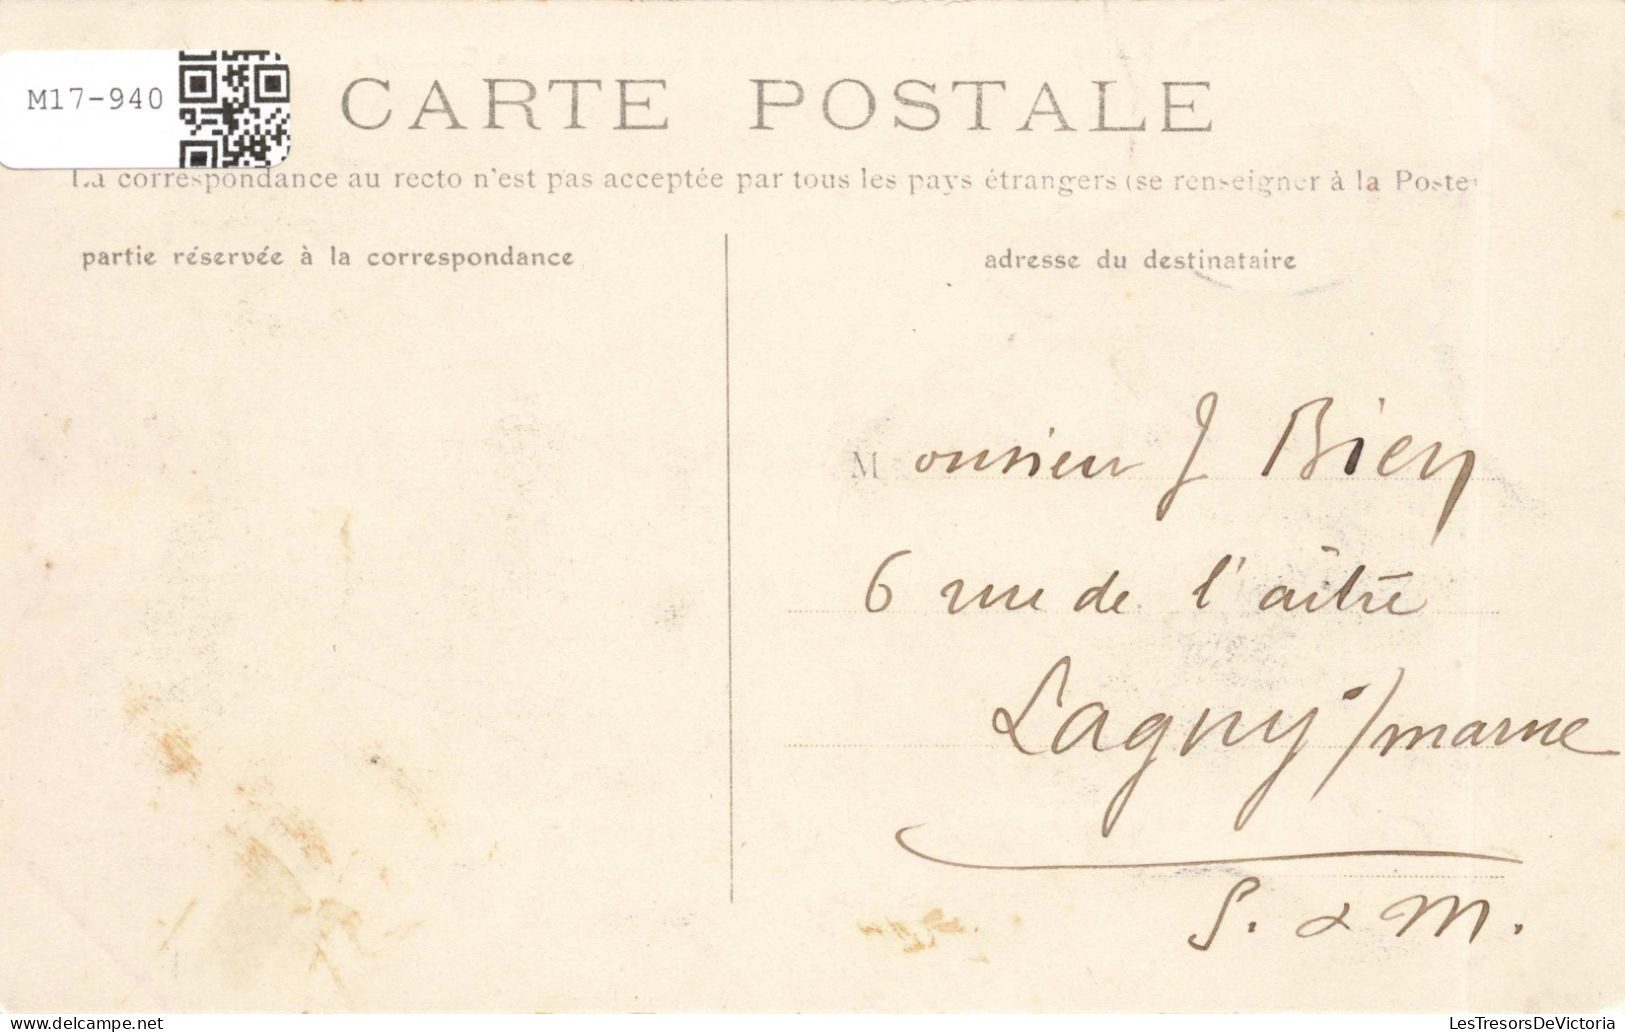 M17-940
CARTE POSTALE
La correspondance au recto n'est pas acceptée par tous les pays étrangers (se renseigner à la Poste)
partie réservée à la correspondance
adresse du destinataire
Monsieur J Bien
6 rue de l'aitre
Lagny s/marne
S. & M.
LesTresorsDeVictoria
delcampe.net